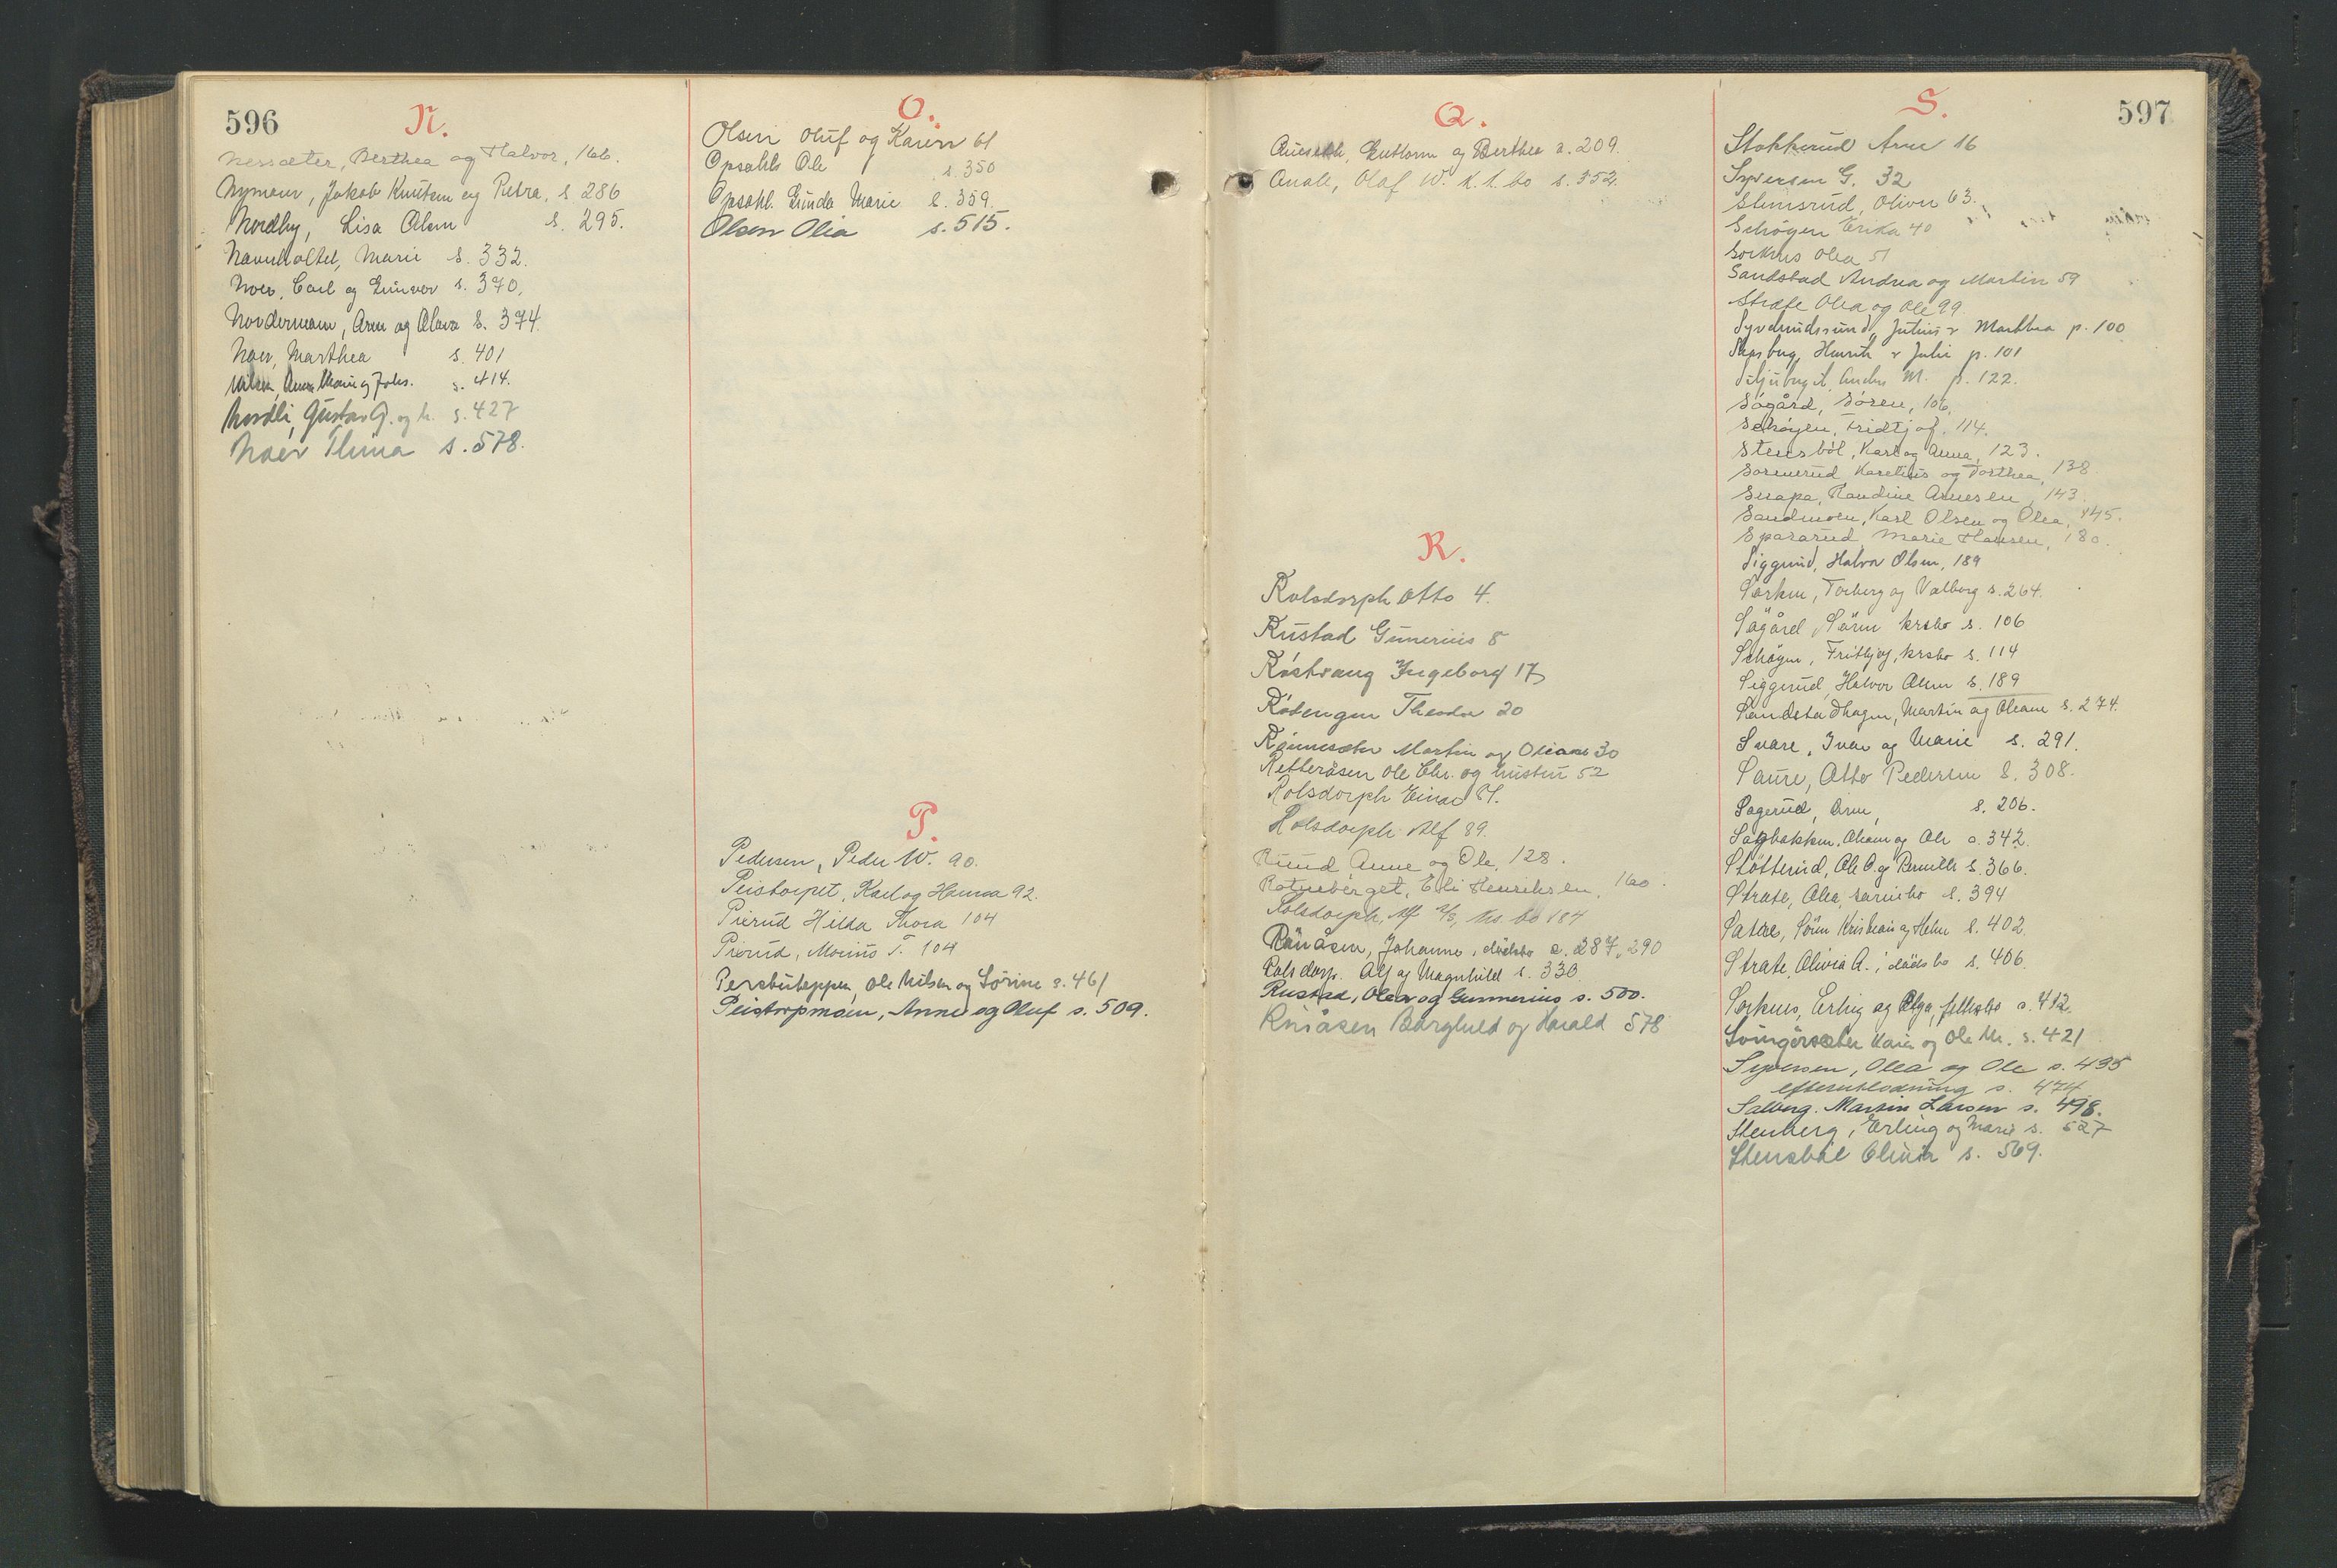 596
N.
Nessæter, Berthea og Halvor, 166.
Nymoen, Jakob Knutsen og Petra, s 286
Nordby, Lisa Olsen s. 295.
Marie s. 332.
Noer, Carl og Gunvor s. 370.
Nordermoen, Arne og Olava s. 374.
Noer, Marthea s. 401
Nilsen, Anne Marie og Johs. s. 414.
Nordli, Gustav G. og h. s. 427
Noer Thina s. 578.
O.
Olsen Oluf og Karen 61
Opsahl Ole s. 350
Opsahl. Gunda Marie s. 359.
Olsen Olia s. 515.
P.
Pedersen, Peder W. 90.
Peistorpet, Karl og Hanna 92.
Pixrud Hilda Thora 104
Pixrud, Marius T. 104
Perstuteppen, Ole Nilsen og Sörine s. 461
Peistorpmoen, Anne og Oluf s. 509.
597
Q.
Guttorm og Berthea s. 209.
Quale, Olaf W. k. k. bo s. 352.
R.
Rolsdorph Otto 4.
Rustad Gunerius 8
Röstvang Ingeborg 17
Rödengen Theodor 20
Rönnesæter Martin og Oleane 30
Retteråsen Ole Chr. og hustru 52
Rolsdorph Einar 81.
Rolsdorph Alf 89.
Ruud Anne og Ole, 128.
Rotneberget, Eli Henriksen, 160.
Rolsdorph, Alf ks. bo 184
Rönåsen, Johanne, dödsbo s. 287, 290
Rolsdorph. Alf og Magnhild s. 330
Rustad, Olea og Gunnerius s. 500.
Rusåsen Borghild og Harald 578
S.
Stokkerud Arne 16
Syversen G. 32
Slemsrud, Oliver 63.
Schöyen Erika 40
Sorknes Olea 51
Sandstad Andrea og Martin 59
Strate Olea og Ole 99
Syverudssund, Julius & Marthea p. 100
Henrik & Julie p. 101
Andr. M. p. 122.
Sögård, Sören, 106.
Schöyen, Fridtjof. 114.
Stensböl, Karl og Anna, 123.
Sormerud, Karelius og Dorthea, 138
Snapa, Randine Arnesen, 143.
Sandmoen, Karl Olsen og Olea, 145.
Spararud, Marie Hansen, 180.
Siggerud, Halvor Olsen, 189
Sorken, Torberg og Valborg s. 264.
Sögård, Sören krsbo s. 106
Schöyen, Fritjof, krsbo s. 114
Siggerud, Halvor Olsen s. 189
Sandstadhagen, Martin og Oleane s. 274.
Snare, Ivar og Marie s. 291.
Saure, Otto Pedersen s. 308.
Sagerud, Arne, s. 206.
Sagbakken, Oleane og Ole s. 342.
Stötterud, Ole O. og Pernille s. 366.
Strate, Olea, særeibo s. 394
Satere, Sören Kristian og Helene s. 402.
Strate, Olivia A., dödsbo s. 406.
Sorknes, Erling og Olga, fellesbo s. 412.
Svingörsæter Karen og Ole M. s. 421
Syversen, Olea og Ole s. 435
efterutlodning s. 474
Salberg. Martin Larsen s. 498.
Stenberg, Erling og Marie s. 527
Stensböl Olivia s. 569.